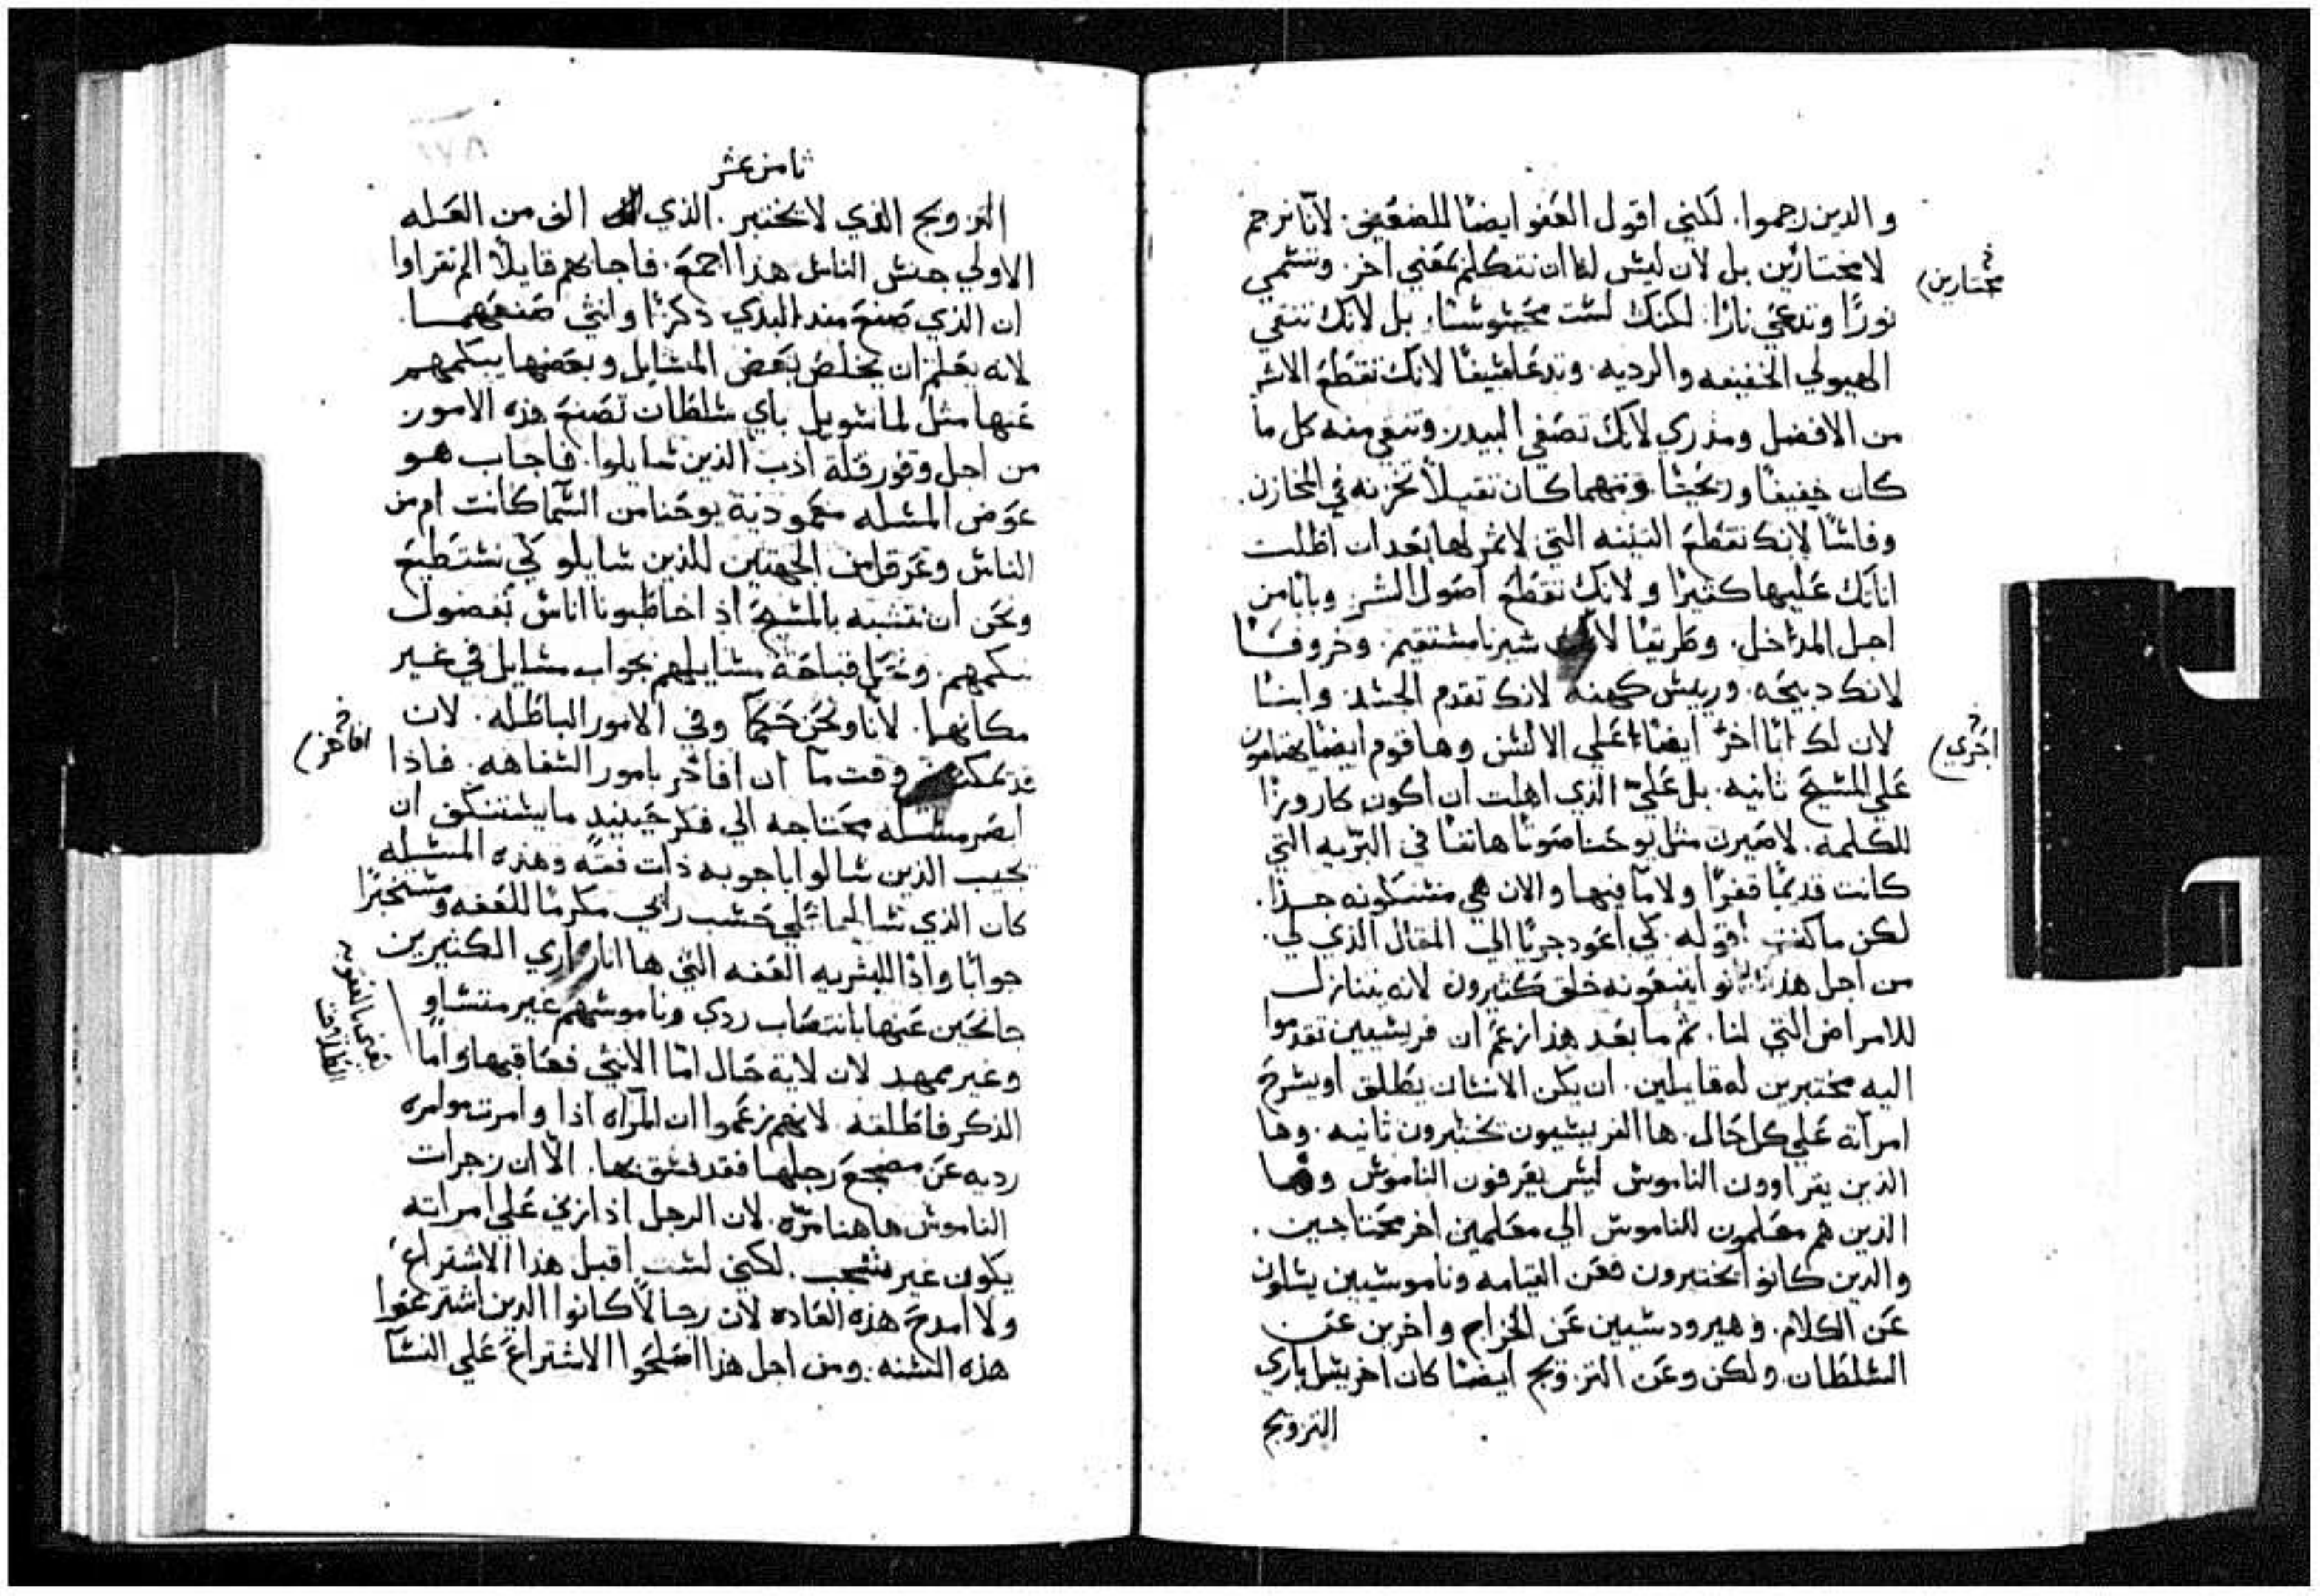 والدين رجموا. لكني اقول العفو ايضًا للضعيفي. لانّا نرجم
لا مختارين بل لان ليس لنا ان نتكلم بمعني اخر. وتتسمي
مختارين
نورًا وتدعي نارًا. لكنك لست محسوسًا. بل لانك تنقي
الهيولي الخفيفه والرديه. وتدعا سيفًا لانك تقطع الاشر
من الافضل ومدري لانك تصفي البيدر وتنقي منه كل ما
كان خفيفًا وريحيًا. ومهما كان تقيلًا تخزنه في المخازن.
وفاسًا لانك تقطع التينه التي لا ثمر لها بعد ان اطلت
اناتك عليها كثيرًا ولانك تقطع اصول الشر. وبابًا من
اجل المداخل. وطريقًا لان سيرنا مستقيم. وخروفًا
لانك دبيحه. وريس كهنه لانك تقدم الجسد. وابنًا
لان لك ابًا اخرّ ايضًا علي الالسن وها قوم ايضًا يخاصمون
اجري
علي المسيح ثانيه. بل عليّ الذي اهلت ان اكون كاروزًا
للكلمة. لاصيرن مثل يوحنا صوتًا هاتفًا في البرّيه التي
كانت قديمًا قفرًا ولا مآ فيها والان هي متسكونه جدًا.
لكن ما كنت اقوله. كي اعود جريًا الي المقال الذي لي.
من اجل هدا كانوا يتبعونه خلق كثيرون لانه يتنازل
للامراض التي لنا. ثم ما بعد هذا زعم ان فريسيين تقدموا
اليه مختبرين له قايلين. ان يكن الانسان يطلق او يسرح
امرآته علي كل حال. ها الفريسيون يختبرون ثانيه. وها
الذين يقراوون الناموس ليس يعرفون الناموس وها
الذين هم معلمون للناموس الي معلمين اخر محتاجين.
والدين كانوا يختبرون فعن القيامه وناموسيين يسلون
عن الكلام. وهيرودسيين عن الخراج واخرين عن
السلطان. ولكن وعن التزويج ايضًا كان اخر يسل باري
التزويج
ثامن عشر
التزويج الذي لا يختبر. الذي الف من العله
الاولي جنس الناس هذا اجمع. فاجابهم قايلًا الم تقراوا
ان الذي صنع مند البدي ذكرًا وانثي صنعهما.
لانه يعلم ان يخلص بعض المسايل وبعضها يبكمهم
عنها مثل لما سويل باي سلطان تصنع هذه الامور
من اجل وفور قلة ادب الذين سايلوا. فاجاب هو
عوض المسله معمودية يوحنا من السما كانت ام من
الناس وعرقل من الجهتين للذين سايلو كي نستطيع
ونحن ان نتشبه بالمسيح اذ اخاطبونا اناس بفضول
نبكمهم. ونحل قباحة مسايلهم بجواب مسايل في غير
مكانها. لانا ونحن حكمآ وفي الامور الباطله. لان
قد يمكن وقت مآ ان افاخر بامور السفاهه. فاذا
افاخر
ابصر مسله محتاجه الي فكر حينيد ما يستنكف ان
يجيب الذين سالوا باجوبه ذات فهم وهذه المسيله
كان الذي سالها علي حسب رايي مكرمًا للعفه ومستخبرًا
جوابًا واذًا للبشريه العفه التي ها انا اري الكثيرين
جانحين عنها بانتصاب ردي وناموسهم غير متساوٍ
وغير ممهد لان لاية حال امّا الانثي فعاقبها وامّا
يعني بالعقوبه الطلاق
الذكر فاطلقه لانهم زعموا ان المرآه اذا وامرت موامره
رديه عن مضجع رجلها فقد فسق بها. الّا ان زجرات
الناموس هاهنا مرّه. لان الرجل اذا زني علي امراته
يكون غير منشجب. لكني لست اقبل هذا الاشتراع
ولا امدح هذه العاده لان رجالًا كانوا الدين اشترعوا
هذه السنه. ومن اجل هذا اصلحوا الاشتراع علي النسآ